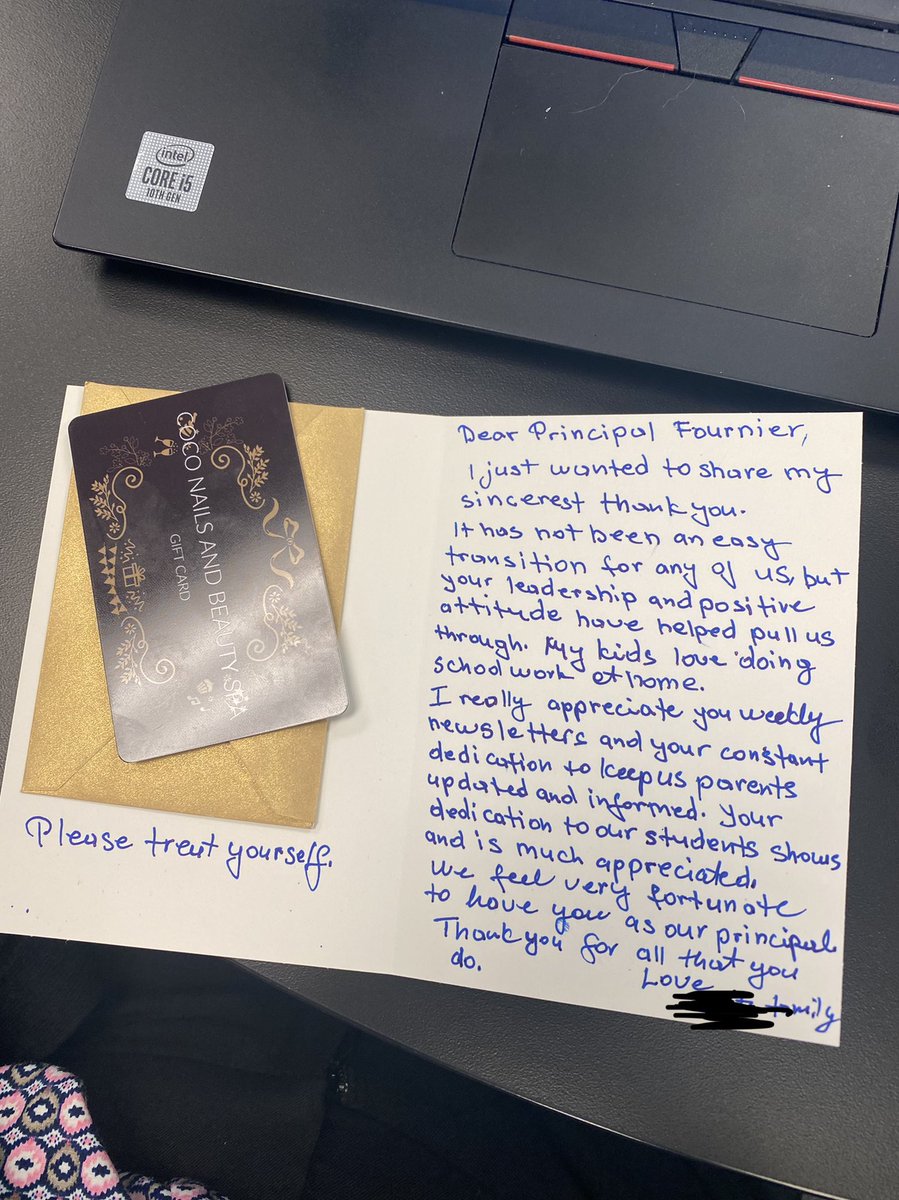 intel
CORE i5
10TH GEN
COCO NAILS AND BEAUTY SPA
GIFT CARD
Please treat yourself.
Dear Principal Fournier,
I just wanted to share my
sincerest thank you.
It has not been an easy
transition for any of us, but
your leadership and positive
attitude have helped pull us
through. My kids love doing
schoolwork at home.
I really appreciate you weekly
newsletters and your constant
dedication to keep us parents
updated and informed. Your
dedication to our students shows
and is much appreciated.
We feel very fortunate
to have you as our principal.
Thank you for all that you
do.
Love
family